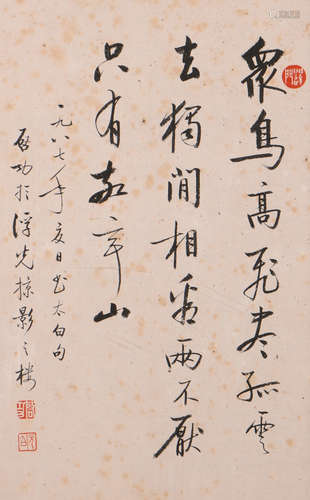 眾鳥高飛盡孤雲
去獨閒相看兩不厭
只有敬亭山
一九八七年夏日書太白句
啟功於浮光掠影之樓